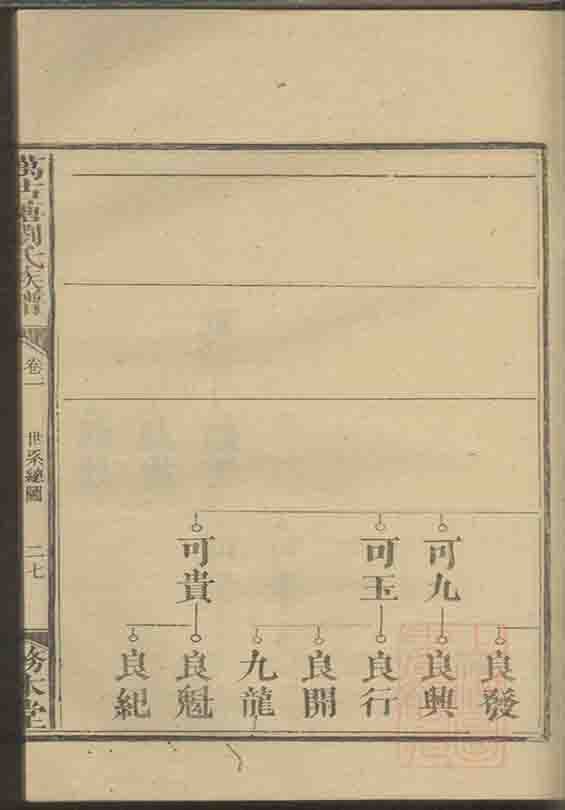 可九
可玉
可貴
良發
良興
良行
良開
九龍
良魁
良紀
氏族譜
卷一
世系總圖
二七
務本堂